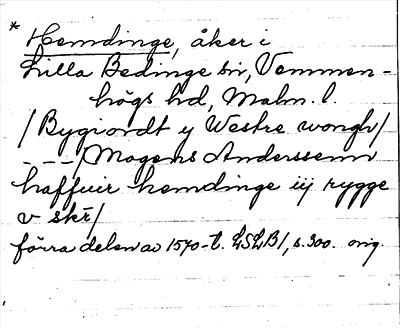 * Hemdinge, åker i
Lilla Bedinge sn, Vemmen-
högs hd, Malm. l.
/ Bygiordt y Westre wongh /
- - - / Mogens Anderssenn
haffuir hemdinge iij rygge
v skr /
förra delen av 1570-t. LSLB1, s. 300. orig.